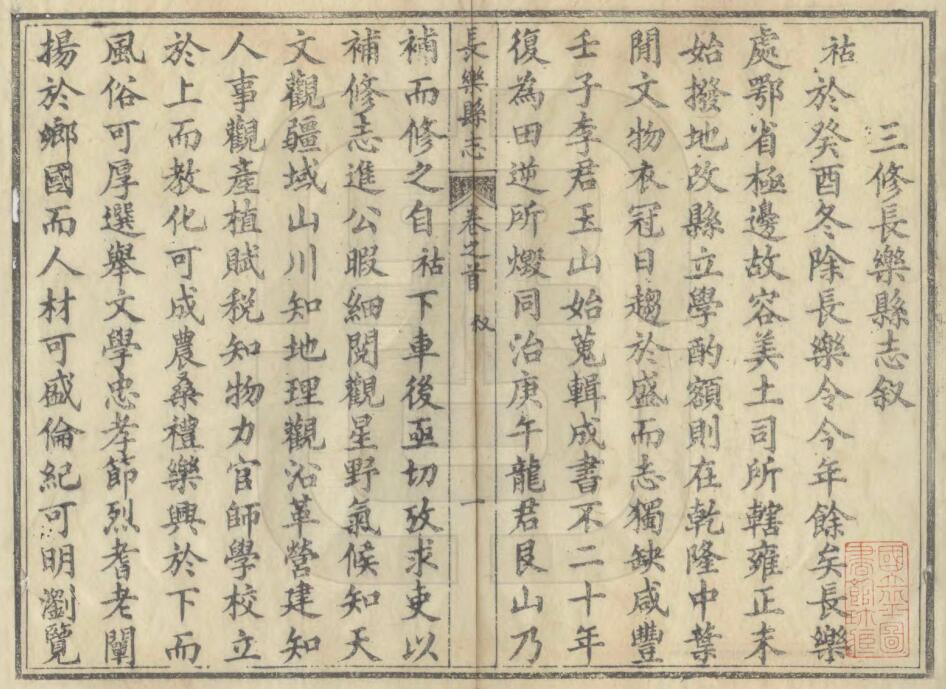 三修長樂縣志叙
祜於癸酉冬除長樂令今年餘矣長樂
處鄂省極邊故容美土司所轄雍正末
始撥地改縣立學酌額則在乾隆中葉
閒文物衣冠日趨於盛而志獨缺咸豐
壬子李君玉山始蒐輯成書不二十年
復為田逆所燬同治庚午龍君艮山乃
長樂縣志 卷之首 叙 一
補而修之自祜下車後亟切攷求吏以
補修志進公暇細閱觀星野氣候知天
文觀疆域山川知地理觀沿革營建知
人事觀產植賦稅知物力官師學校立
於上而教化可成農桑禮樂興於下而
風俗可厚選舉文學忠孝節烈耆老闡
揚於鄉國而人材可盛倫紀可明瀏覽